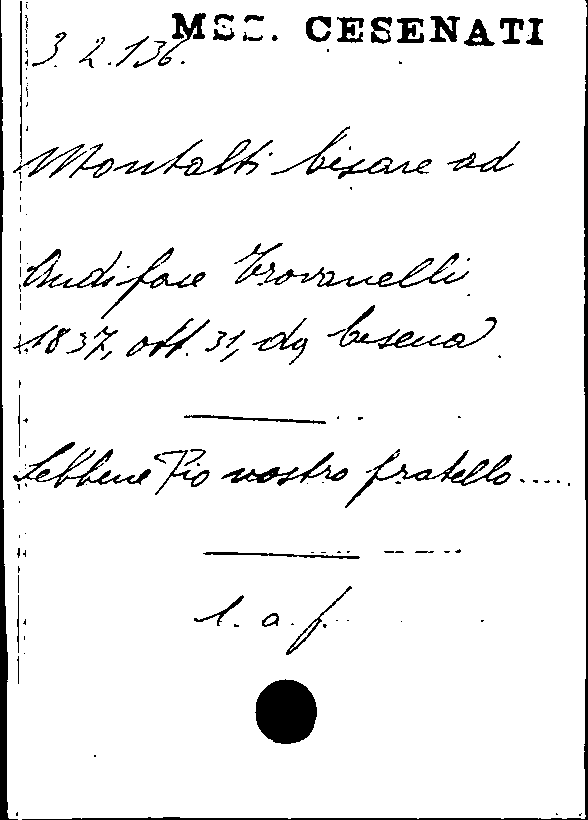 MSS. CESENATI
3.2.136.
Montalti Cesare ad
Audiface Trovanelli
1837, ott. 31, da Cesena
Sebbene Pio vostro fratello.....
l. a. f.